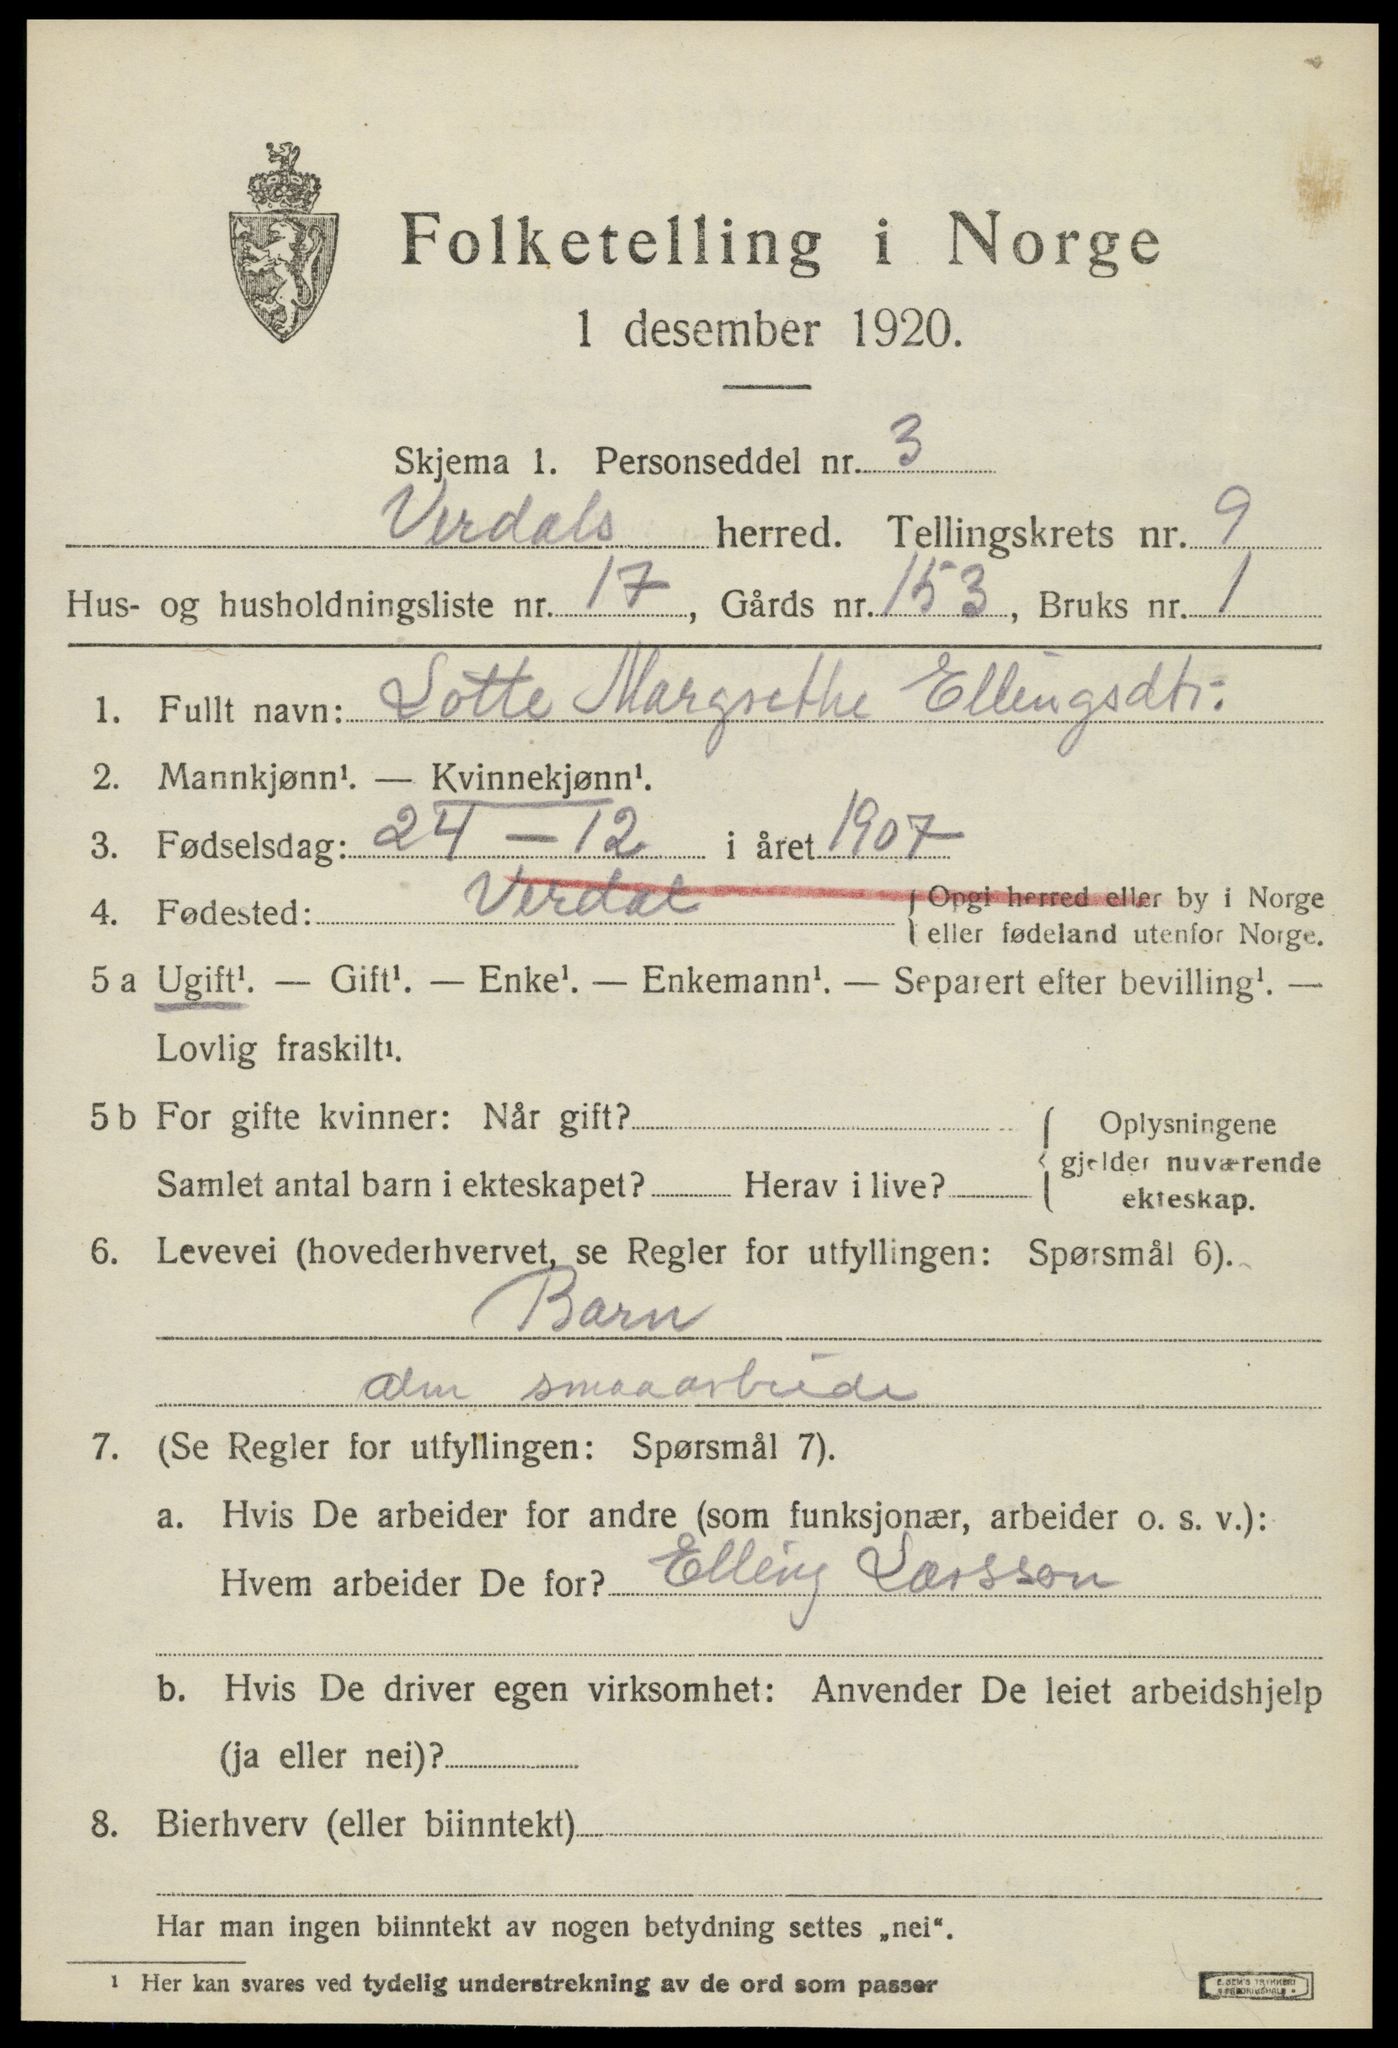 Folketelling i Norge
1 desember 1920.
Skjema 1. Personseddel nr. 3
Verdals herred. Tellingskrets nr. 9
Hus- og husholdningsliste nr. 17, Gårds nr. 153, Bruks nr. 1
1. Fullt navn: Lotte Margrethe Ellingsdtr.
2. Mannkjønn¹. — Kvinnekjønn¹.
3. Fødselsdag: 24 — 12 i året 1907
4. Fødested: Verdal { Opgi herred eller by i Norge
eller fødeland utenfor Norge.
5 a Ugift¹. — Gift¹. — Enke¹. — Enkemann¹. — Separert efter bevilling¹. —
Lovlig fraskilt¹.
5 b For gifte kvinner: Når gift? { Oplysningene
gjelder nuværende
Samlet antal barn i ekteskapet? Herav i live?
ekteskap.
6. Levevei (hovederhvervet, se Regler for utfyllingen: Spørsmål 6).
Barn
alm smaaarbeide
7. (Se Regler for utfyllingen: Spørsmål 7).
a. Hvis De arbeider for andre (som funksjonær, arbeider o. s. v.):
Hvem arbeider De for? Elling Larsson
b. Hvis De driver egen virksomhet: Anvender De leiet arbeidshjelp
(ja eller nei)?
8. Bierhverv (eller biinntekt)
Har man ingen biinntekt av nogen betydning settes „nei“.
¹ Her kan svares ved tydelig understrekning av de ord som passer